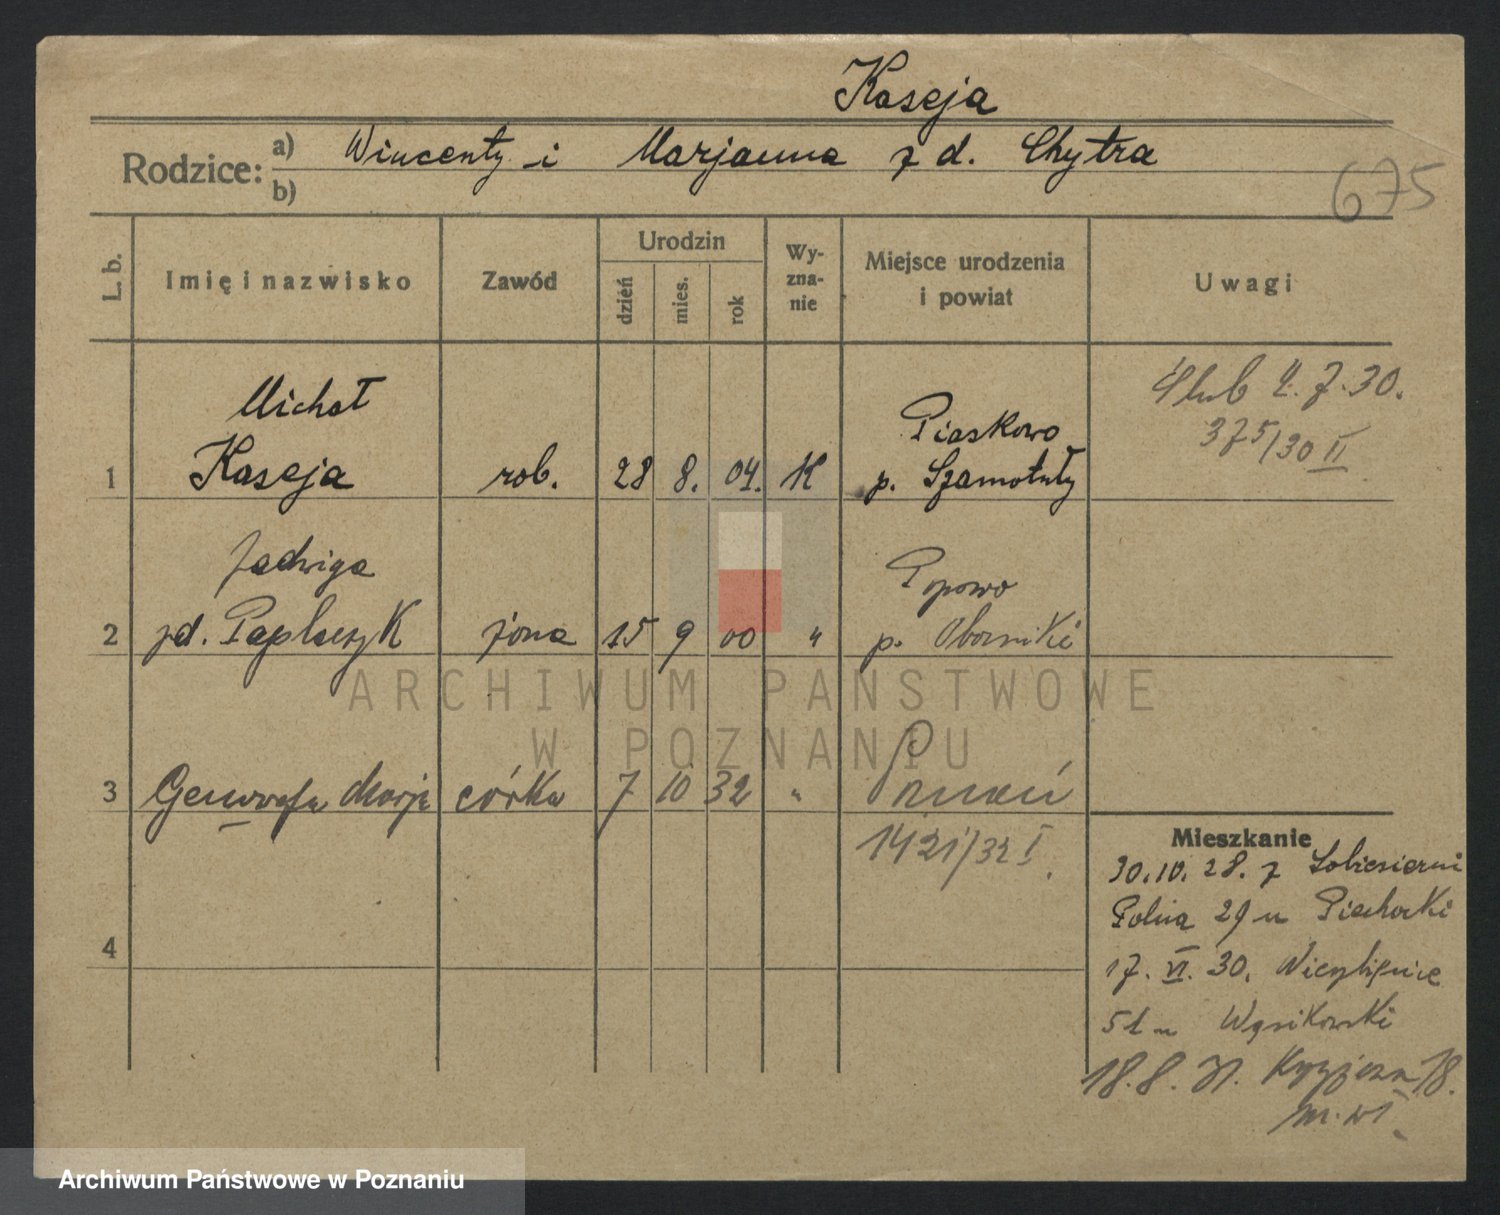 Kaseja
Rodzice:
a) Wincenty i Marjanna z d. Chytra
b)
675
L. b.
Imię i nazwisko
Zawód
Urodzin
dzień
mies.
rok
Wy-
zna-
nie
Miejsce urodzenia
i powiat
Uwagi
Michał
Kaseja
1
rob.
28 8. 04. K
Piaskowo
p. Szamotuły
Ślub 4.7.30.
375/30 II
Jadwiga
2 zd.
żona 15 9 00 "
Popowo
p. Oborniki
3 Genowefa Marja córka 7 10 32 "
Poznań
1421/32 I.
4
Mieszkanie
30.10.28. z
Polna 29 u Piechocki
17. VI. 30.
51 u Wąsikowski
18.8.31. 18.
m. wł.
ARCHIWUM PAŃSTWOWE
W POZNANIU
Archiwum Państwowe w Poznaniu